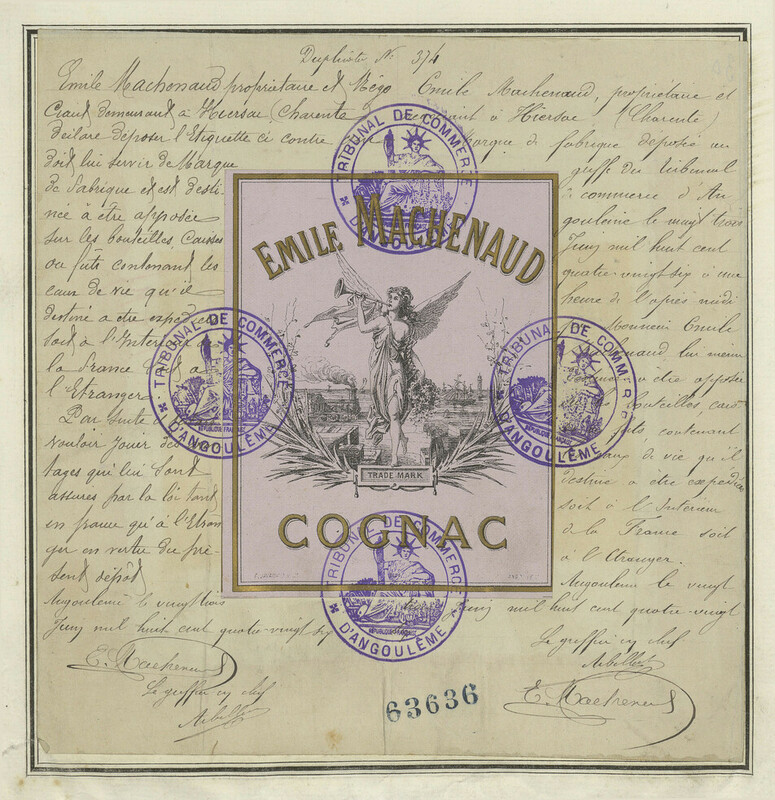 Duplicata No 374
Emile Machenaud propriétaire et Négo
ciant demeurant à Hiersac (Charente
déclare déposer l'Etiquette ci contre
doit lui servir de Marque
de fabrique et est desti
née à être apposée
sur les bouteilles, Caisses
ou fûts contenant les
eaux de vie qu'il
destine à être expédiées
soit à l'Intérieur
la France
l'Etranger
Par suite
vouloir Jouir de
tages qui lui sont
assurés par la loi tant
en france qu'à l'Etran
ger en vertu du pré
sent dépôt
Angoulême le vingt trois
Juin mil huit cent quatre-vingt six
E. Machenaud
Le greffier en chef
EMILE MACHENAUD
TRADE MARK
COGNAC
TRIBUNAL DE COMMERCE
D'ANGOULÊME
TRIBUNAL DE COMMERCE
RÉPUBLIQUE FRANÇAISE
D'ANGOULÊME
TRIBUNAL DE COMMERCE
D'ANGOULÊME
TRIBUNAL DE COMMERCE
RÉPUBLIQUE FRANÇAISE
D'ANGOULÊME
Emile Machenaud, propriétaire et
à Hiersac (Charente)
marque de fabrique déposée au
greffe du Tribunal
de commerce d'An
goulême le vingt trois
Juin mil huit cent
quatre-vingt six à une
heure de l'après midi
Monsieur Emile
lui même
être apposée
bouteilles, cais
contenant
eaux de vie qu'il
destine à être expédiées
soit à l'Intérieur
de la France soit
à l'Etranger.
Angoulême le vingt
Juin mil huit cent quatre-vingt
Le greffier en chef
E. Machenaud
63636